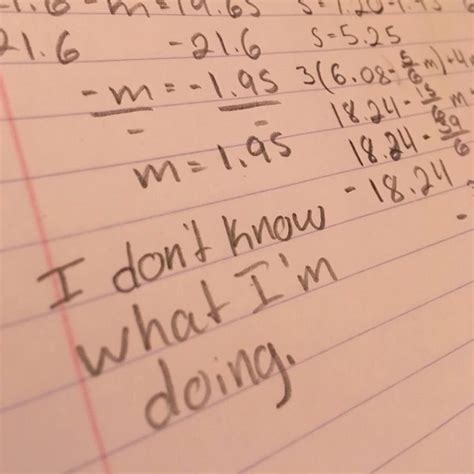 - m = 19.65
21.6 -21.6 s = 5.25
-m = -1.95 3(6.08 - 5/6 m) + 4
- - 18.24 - 15/6 m
m = 1.95 18.24 -
-18.24
I don't know
what I'm
doing.